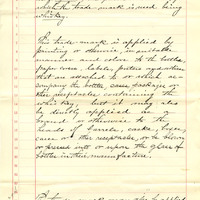 which the trade-mark is used being
whiskey.
This trade-mark is applied by
printing or otherwise, in suitable
manner and color to the bottles,
paper covers, labels, posters and other
that are attached to or which ac-
company the bottles, cases, packages or
other receptacles containing the
whiskey, but it may also
be directly applied as a
brand or otherwise to the
heads of barrels, casks, boxes,
cases or other receptacles, or be blown
or pressed into or upon the glass of
bottles in their manufacture.